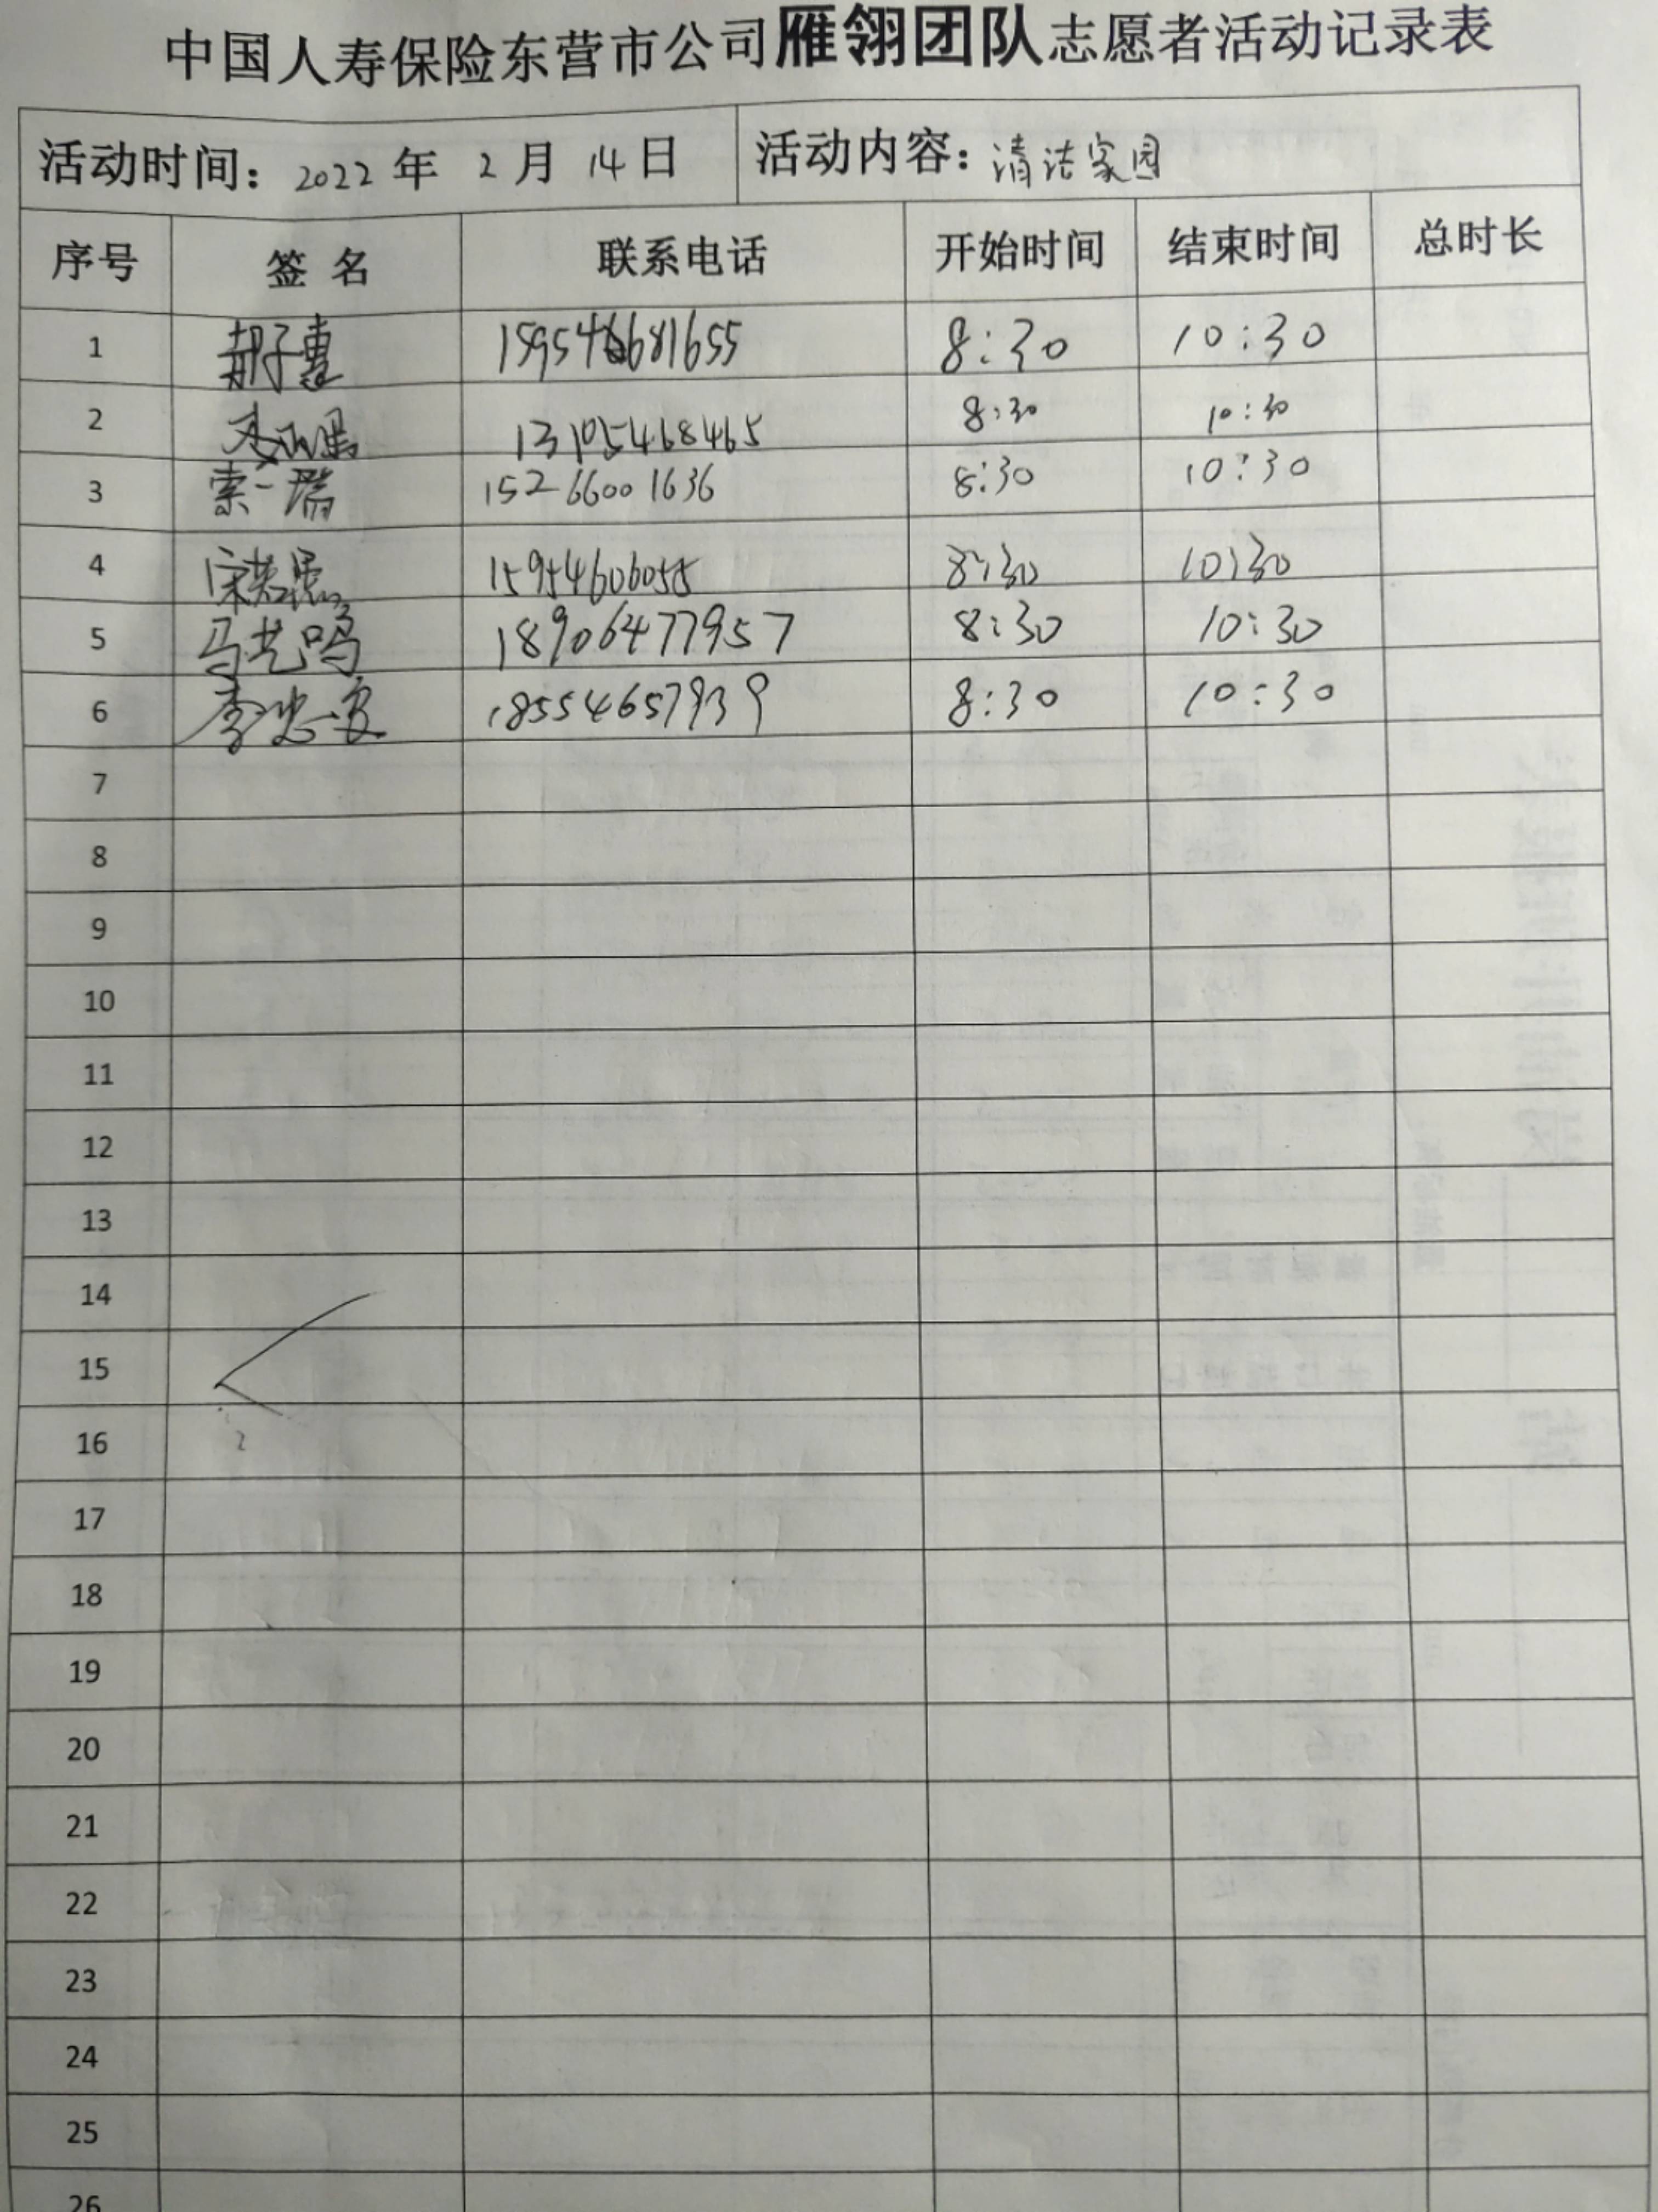 中国人寿保险东营市公司雁翎团队志愿者活动记录表
活动时间：2022年 2月 14日 活动内容：清洁家园
序号 签名 联系电话 开始时间 结束时间 总时长
1 8:30 10:30
2 13105468465 8:30 10:30
3 索一瑞 152 6600 1636 8:30 10:30
4 15954606055 8:30 10:30
5 马艺鸣 18906477957 8:30 10:30
6 18554657939 8:30 10:30
7
8
9
10
11
12
13
14
15
16
17
18
19
20
21
22
23
24
25
26